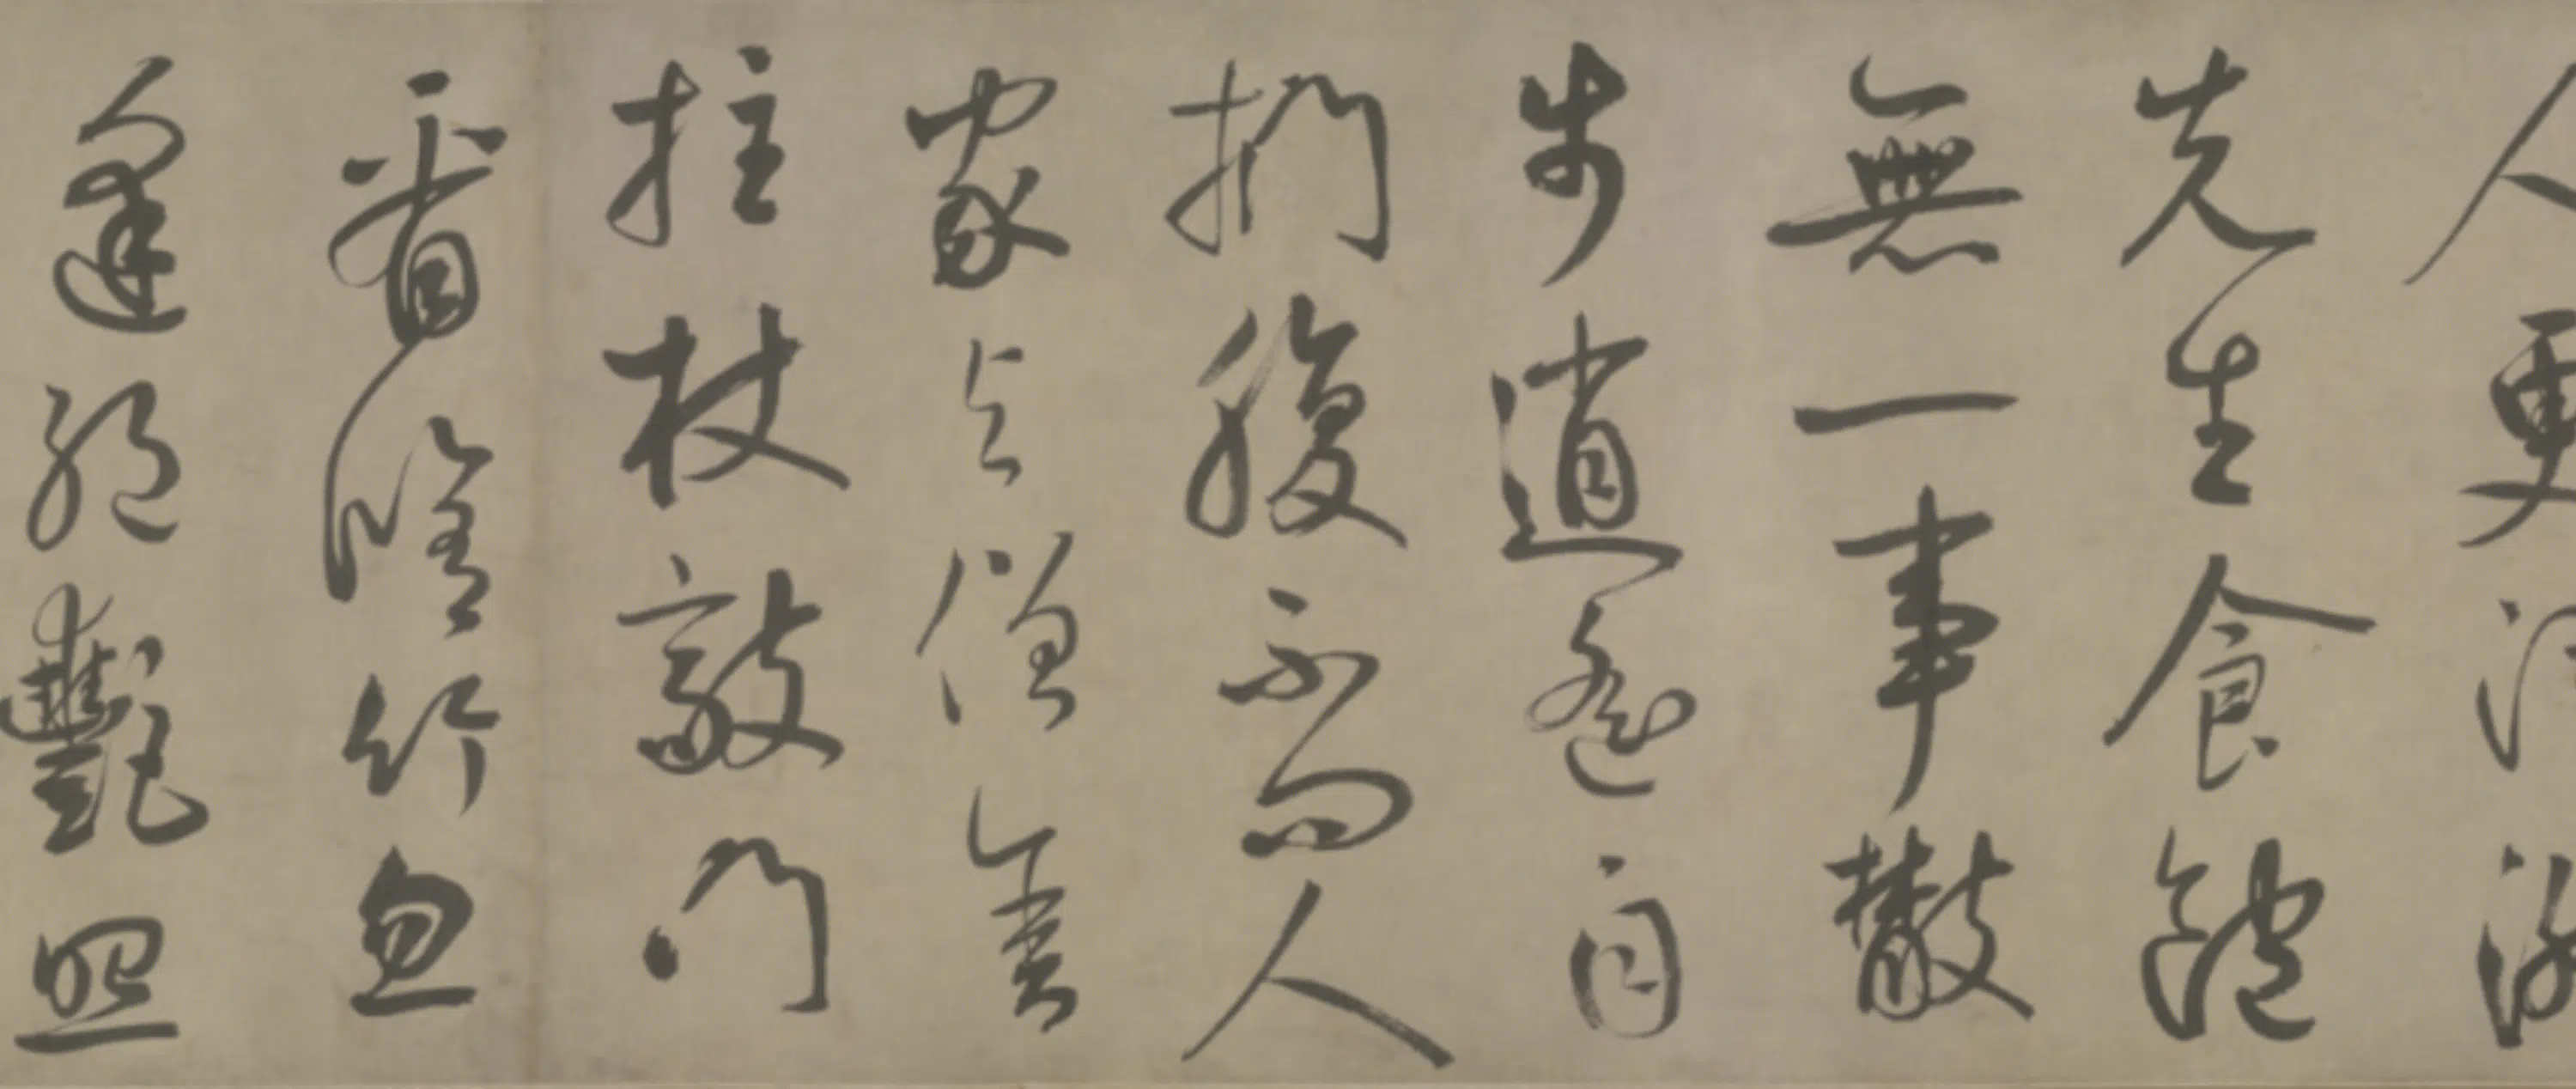 人更
先生食飽
無一事散
步逍遙自
捫腹不問人
家與僧舍
拄杖敲門
看脩竹忽
逢絕豔照